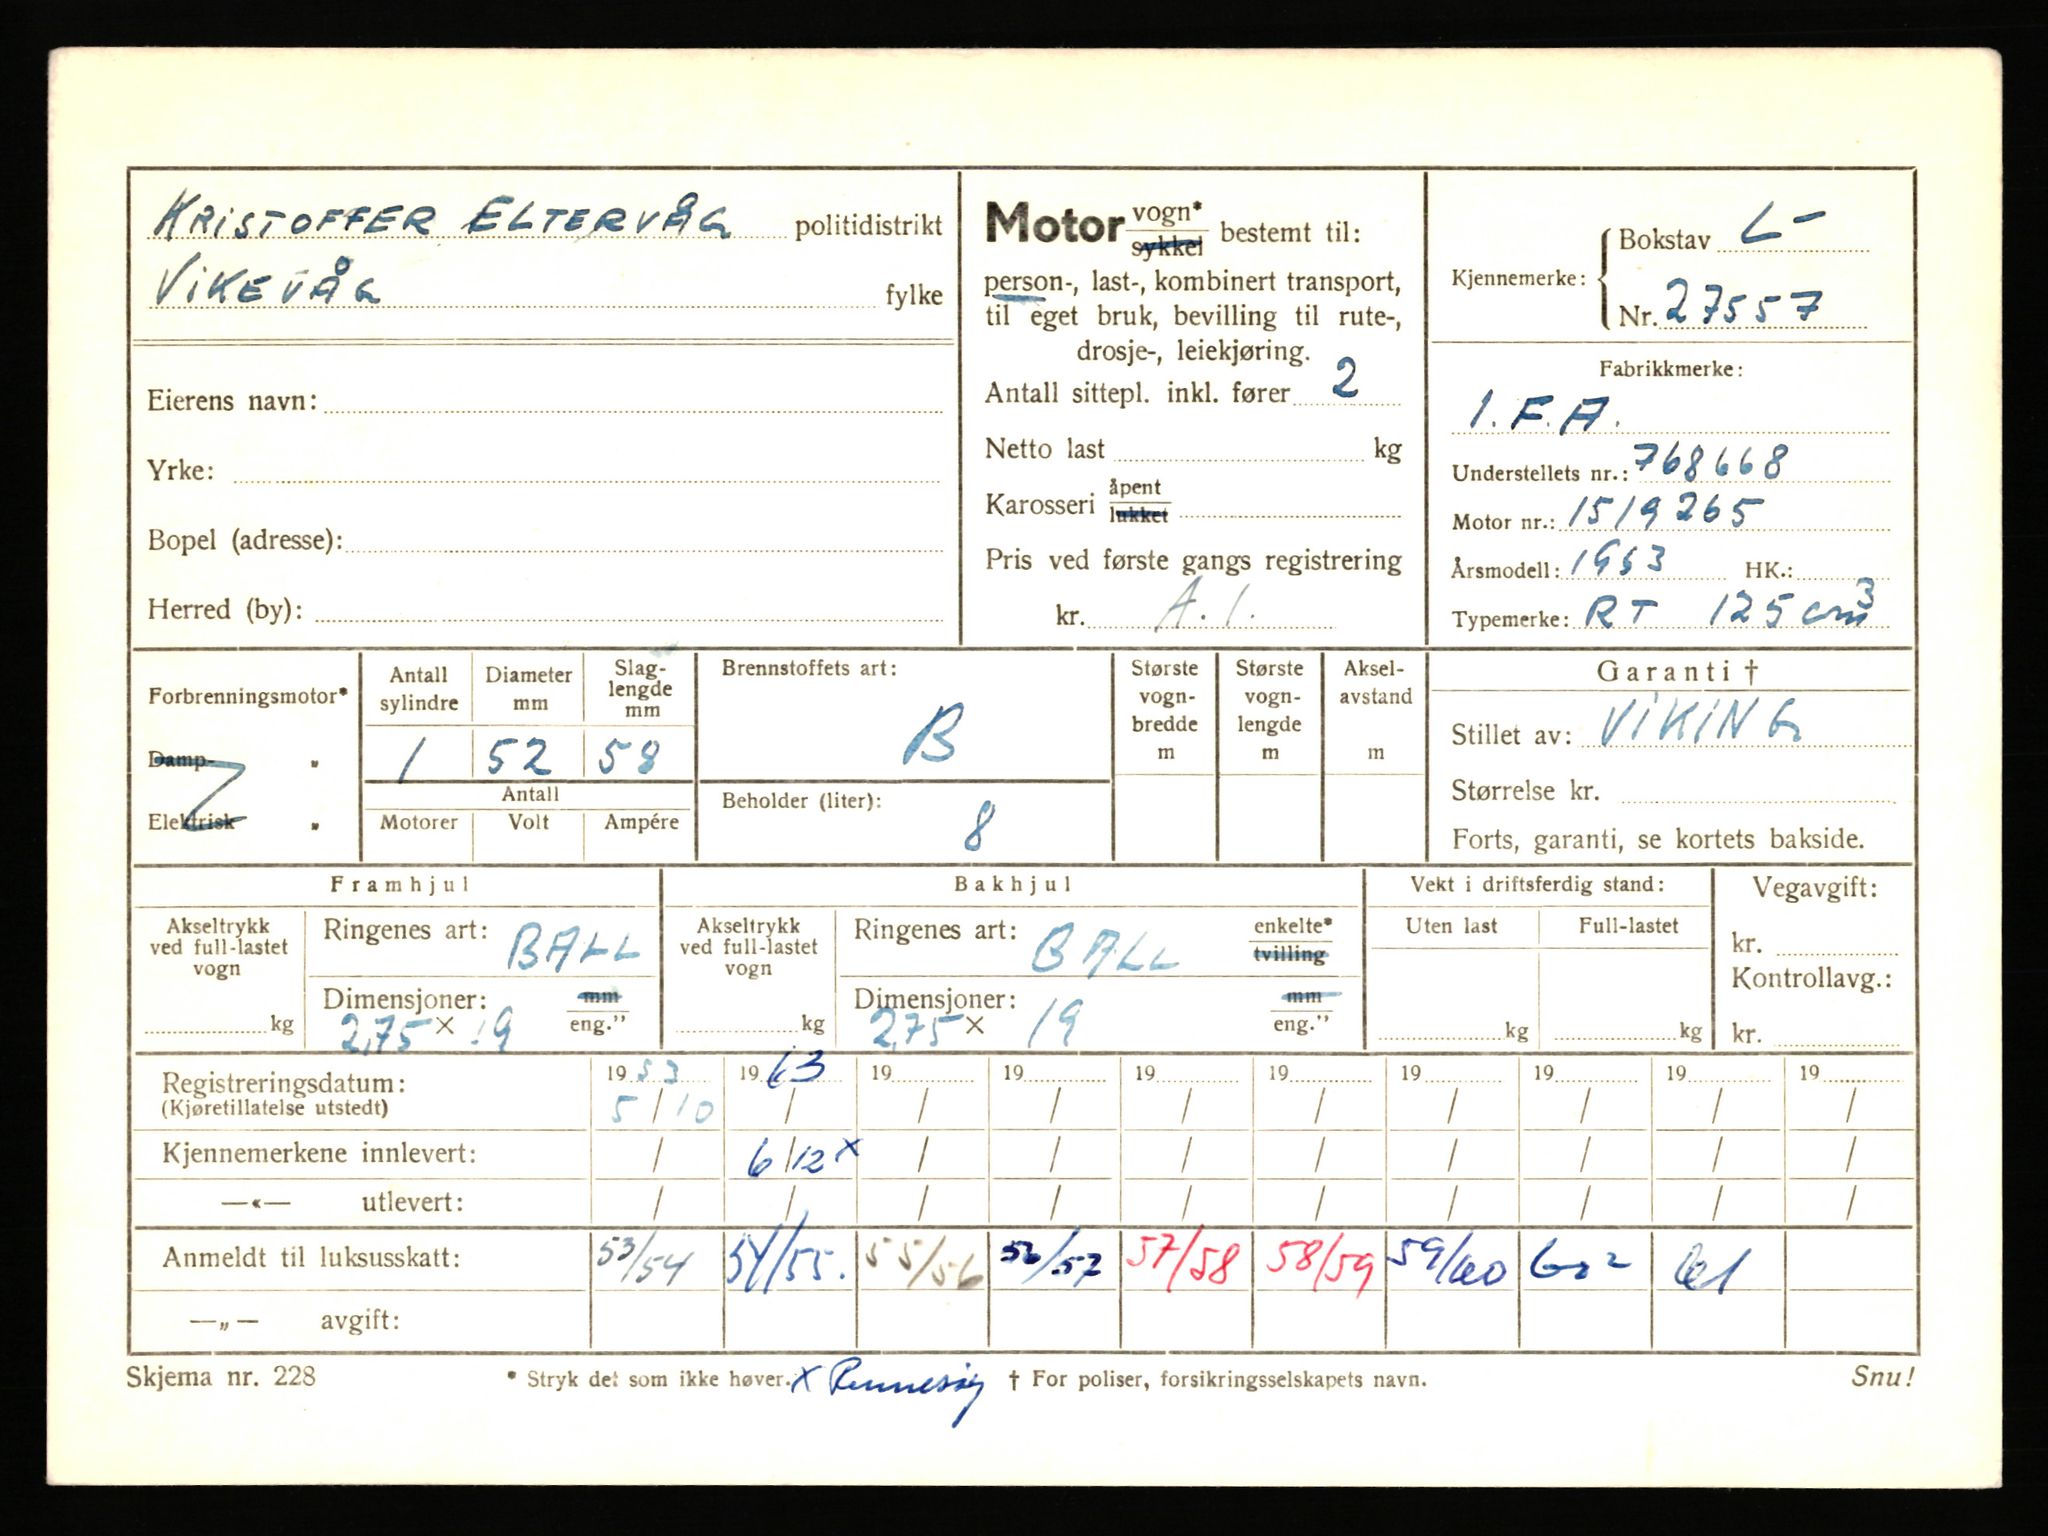 KRISTOFFER ELTERVÅG politidistrikt
VIKEVÅG fylke
Eierens navn:
Yrke:
Bopel (adresse):
Herred (by):
Motor vogn* sykkel bestemt til:
person-, last-, kombinert transport,
til eget bruk, bevilling til rute-,
drosje-, leiekjøring.
Antall sittepl. inkl. fører 2
Netto last kg
Karosseri åpent lukket
Pris ved første gangs registrering
kr. A.I.
Kjennemerke: Bokstav L-
Nr. 27557
Fabrikkmerke:
I.F.A.
Understellets nr.: 768668
Motor nr.: 1519265
Årsmodell: 1953 HK.:
Typemerke: RT 125 cm3
Forbrenningsmotor*
Damp- "
Elektrisk "
Antall sylindre Diameter mm Slag-lengde mm
1 52 58
Antall
Motorer Volt Ampére
Brennstoffets art:
B
Beholder (liter):
8
Største vogn-bredde m
Største vogn-lengde m
Aksel-avstand m
Garanti †
Stillet av: VIKING
Størrelse kr.
Forts, garanti, se kortets bakside.
Framhjul
Akseltrykk ved full-lastet vogn
kg
Ringenes art: BALL
Dimensjoner: mm
2,75 x 19 eng."
Bakhjul
Akseltrykk ved full-lastet vogn
kg
Ringenes art: BALL enkelte* tvilling
Dimensjoner: mm
2,75 x 19 eng."
Vekt i driftsferdig stand:
Uten last Full-lastet
kg kg
Vegavgift:
kr.
Kontrollavg.:
kr.
Registreringsdatum: 19 53 19 63 19 19 19 19 19 19 19 19
(Kjøretillatelse utstedt) 5/10 / / / / / / / / /
Kjennemerkene innlevert: / 6/12 x / / / / / / / /
—«— utlevert: / / / / / / / / / /
Anmeldt til luksusskatt: 53/54 54/55. 55/56 56/57 57/58 58/59 59/60 61
—„— avgift:
Skjema nr. 228 * Stryk det som ikke høver. x Rennesøy † For poliser, forsikringsselskapets navn. Snu!